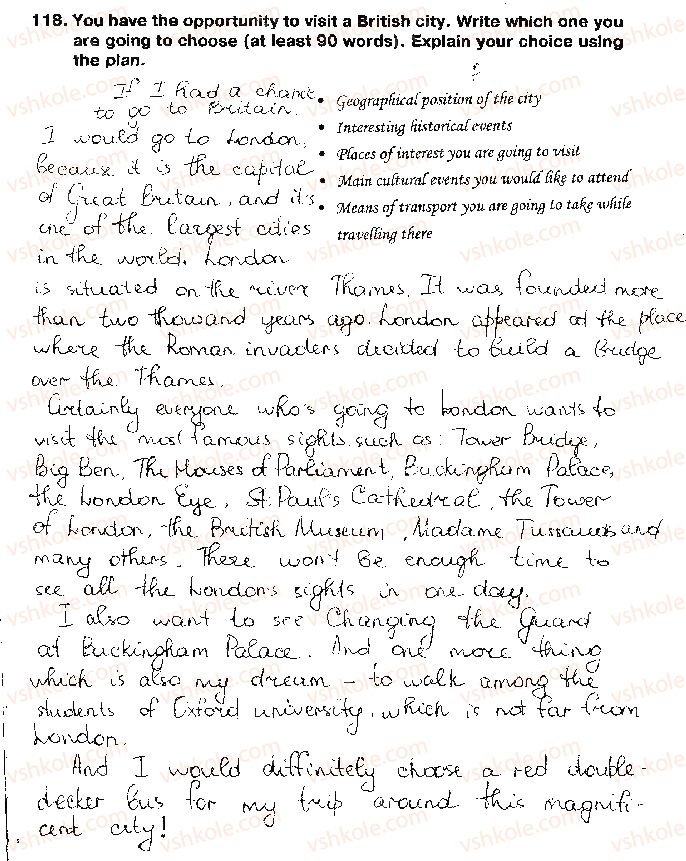 118. You have the opportunity to visit a British city. Write which one you
are going to choose (at least 90 words). Explain your choice using
the plan.
If I had a chance
to go to Britain.
I would go to London,
because it is the capital
of Great Britain, and it's
one of the largest cities
in the world. London
• Geographical position of the city
• Interesting historical events
• Places of interest you are going to visit
• Main cultural events you would like to attend
• Means of transport you are going to take while
travelling there
is situated on the river Thames. It was founded more
than two thousand years ago. London appeared at the place
where the Roman invaders decided to build a bridge
over the Thames.
Certainly everyone who's going to London wants to
visit the most famous sights such as: Tower Bridge,
Big Ben, The Houses of Parliament, Buckingham Palace,
the London Eye, St. Paul's Cathedral, the Tower
of London, the British Museum, Madame Tussauds and
many others. There won't be enough time to
see all the London's sights in one day.
I also want to see Changing the Guard
at Buckingham Palace. And one more thing
which is also my dream – to walk among the
students of Oxford university, which is not far from
London.
And I would diffinitely choose a red double-
decker bus for my trip around this magnifi-
cent city!
vshkole.com